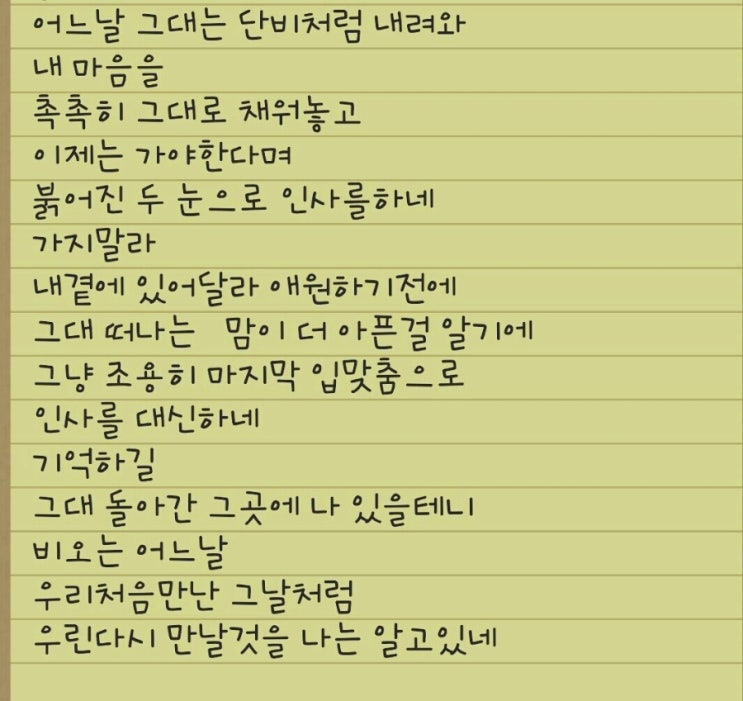 어느날 그대는 단비처럼 내려와
내 마음을
촉촉히 그대로 채워놓고
이제는 가야한다며
붉어진 두 눈으로 인사를하네
가지말라
내곁에 있어달라 애원하기전에
그대 떠나는 맘이 더 아픈걸 알기에
그냥 조용히 마지막 입맞춤으로
인사를 대신하네
기억하길
그대 돌아간 그곳에 나 있을테니
비오는 어느날
우리처음만난 그날처럼
우린다시 만날것을 나는 알고있네